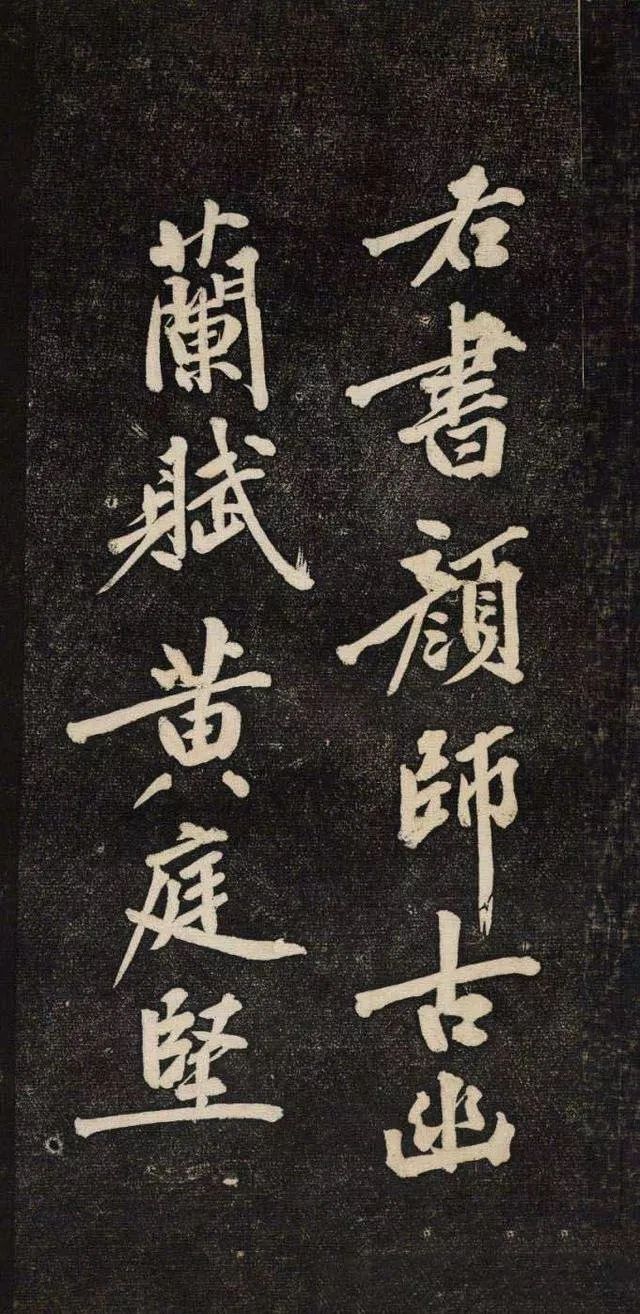 右書顏師古幽
蘭賦黃庭堅